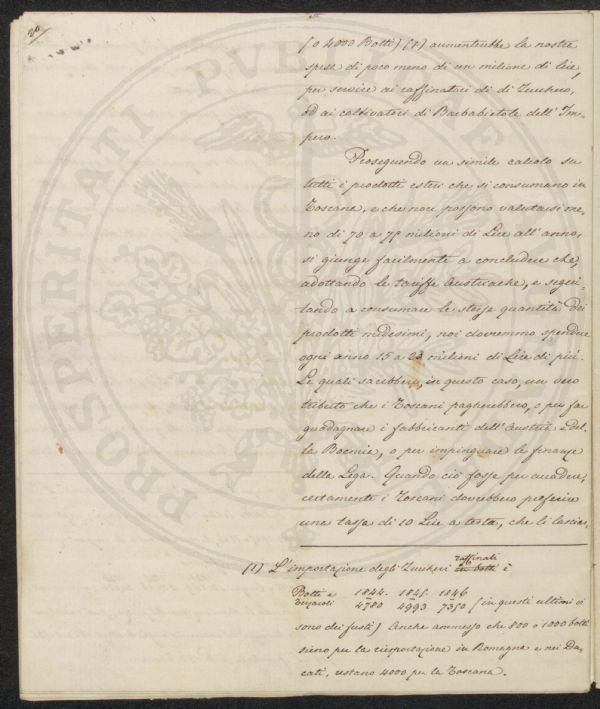 20
(o 4000 Botti) (1) aumenterebbe la nostra
spesa di poco meno di un milione di lire,
per servire ai raffinatori di di Zucchero,
od ai coltivatori di Barbabietole dell'Im-
pero.
Proseguendo un simile calcolo su
tutti i prodotti esteri che si consumano in
Toscana, e che non possono valutarsi me-
no di 70 a 75 milioni di Lire all'anno,
si giunge facilmente a concludere che,
adottando le tariffe Austriache, e segui-
tando a consumare le stesse quantità dei
prodotti medesimi, noi dovremmo spendere
ogni anno 15 a 23 milioni di Lire di più.
Le quali sarebbero, in questo caso, un vero
tributo che i Toscani pagherebbero, o per far
guadagnare i fabbricanti dell'Austria e del-
la Boemia, o per impinguare le finanze
della Lega. Quando ciò fosse per accadere,
certamente i Toscani dovrebbero preferire
una tassa di 10 Lire a testa, che li lascias-
(1) L'importazione degli Zuccheri raffinati in botti è
Botti e 1844. 1845. 1846
Terzaroli 4780 4993 7350 (in questi ultimi vi
sono dei fusti) Anche ammesso che 800 o 1000 botti
sieno per la riesportazione in Romagna e nei Du-
cati, restano 4000 per la Toscana.
PROSPERITATI PUBLICAE